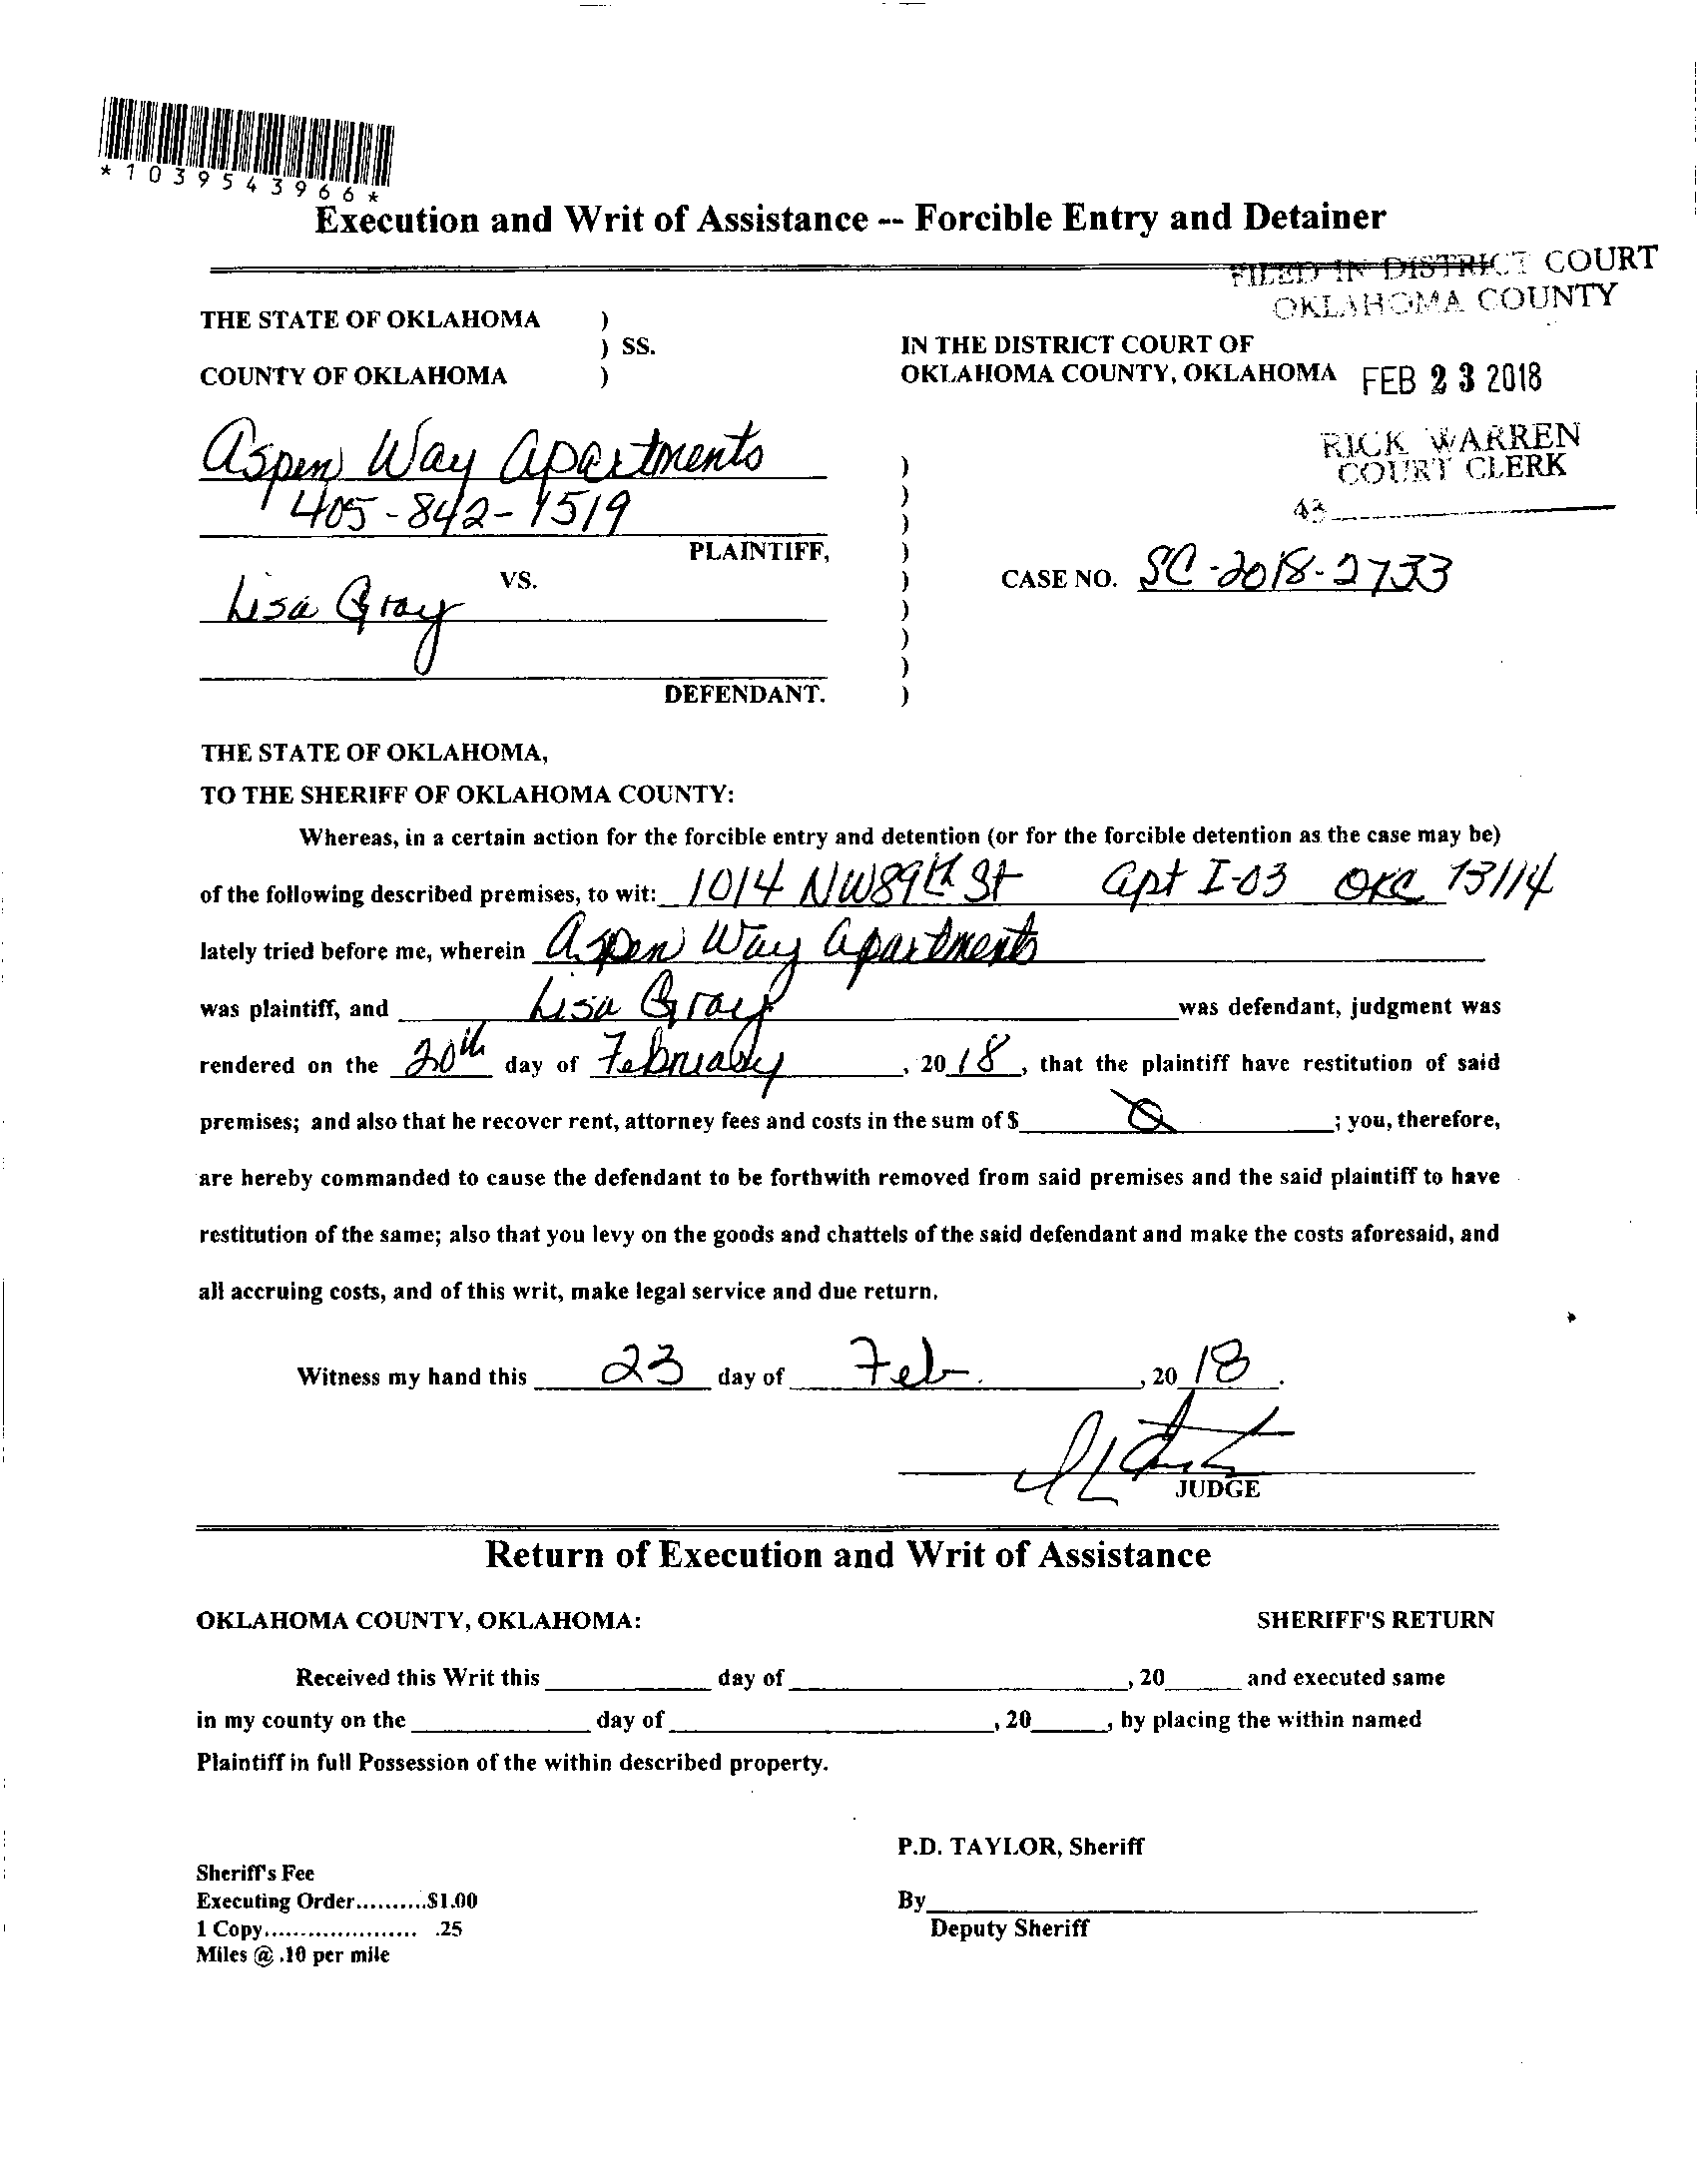 *1039543966*
Execution and Writ of Assistance -- Forcible Entry and Detainer
FILED IN DISTRICT COURT
OKLAHOMA COUNTY
THE STATE OF OKLAHOMA )
) SS.
COUNTY OF OKLAHOMA )
IN THE DISTRICT COURT OF
OKLAHOMA COUNTY, OKLAHOMA
FEB 23 2018
RICK WARREN
COURT CLERK
43
Aspen Way Apartments )
405-842-1519 )
)
PLAINTIFF, )
VS. )
CASE NO. SC-2018-2733
Lisa Gray )
)
)
DEFENDANT. )
THE STATE OF OKLAHOMA,
TO THE SHERIFF OF OKLAHOMA COUNTY:
Whereas, in a certain action for the forcible entry and detention (or for the forcible detention as the case may be)
of the following described premises, to wit: 1014 NW89th St Apt I-03 OKC 73114
lately tried before me, wherein Aspen Way Apartments
was plaintiff, and Lisa Gray was defendant, judgment was
rendered on the 20th day of February, 2018, that the plaintiff have restitution of said
premises; and also that he recover rent, attorney fees and costs in the sum of $ 0; you, therefore,
are hereby commanded to cause the defendant to be forthwith removed from said premises and the said plaintiff to have
restitution of the same; also that you levy on the goods and chattels of the said defendant and make the costs aforesaid, and
all accruing costs, and of this writ, make legal service and due return.
Witness my hand this 23 day of Feb., 2018.
JUDGE
Return of Execution and Writ of Assistance
OKLAHOMA COUNTY, OKLAHOMA: SHERIFF'S RETURN
Received this Writ this ____ day of ____, 20____ and executed same
in my county on the ____ day of ____, 20____, by placing the within named
Plaintiff in full Possession of the within described property.
P.D. TAYLOR, Sheriff
Sheriff's Fee
Executing Order..........$1.00
By____
1 Copy..................... .25
Deputy Sheriff
Miles @ .10 per mile